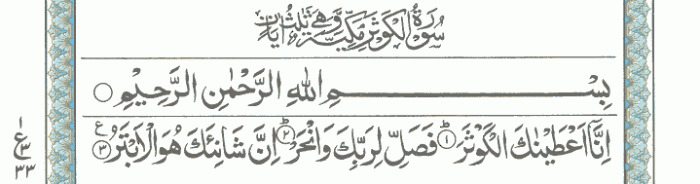 سُوْرَةُ الْكَوْثَرِ مَكِّيَّةٌ وَّهِيَ ثَلٰثُ اٰيَاتٍ
بِسْمِ اللهِ الرَّحْمٰنِ الرَّحِيْمِ ○
اِنَّاۤ اَعْطَيْنٰكَ الْكَوْثَرَ ؕ۱ فَصَلِّ لِرَبِّكَ وَانْحَرْ ؕ۲ اِنَّ شَانِئَكَ هُوَ الْاَبْتَرُ ۳ ع
ع
۳
۳۳